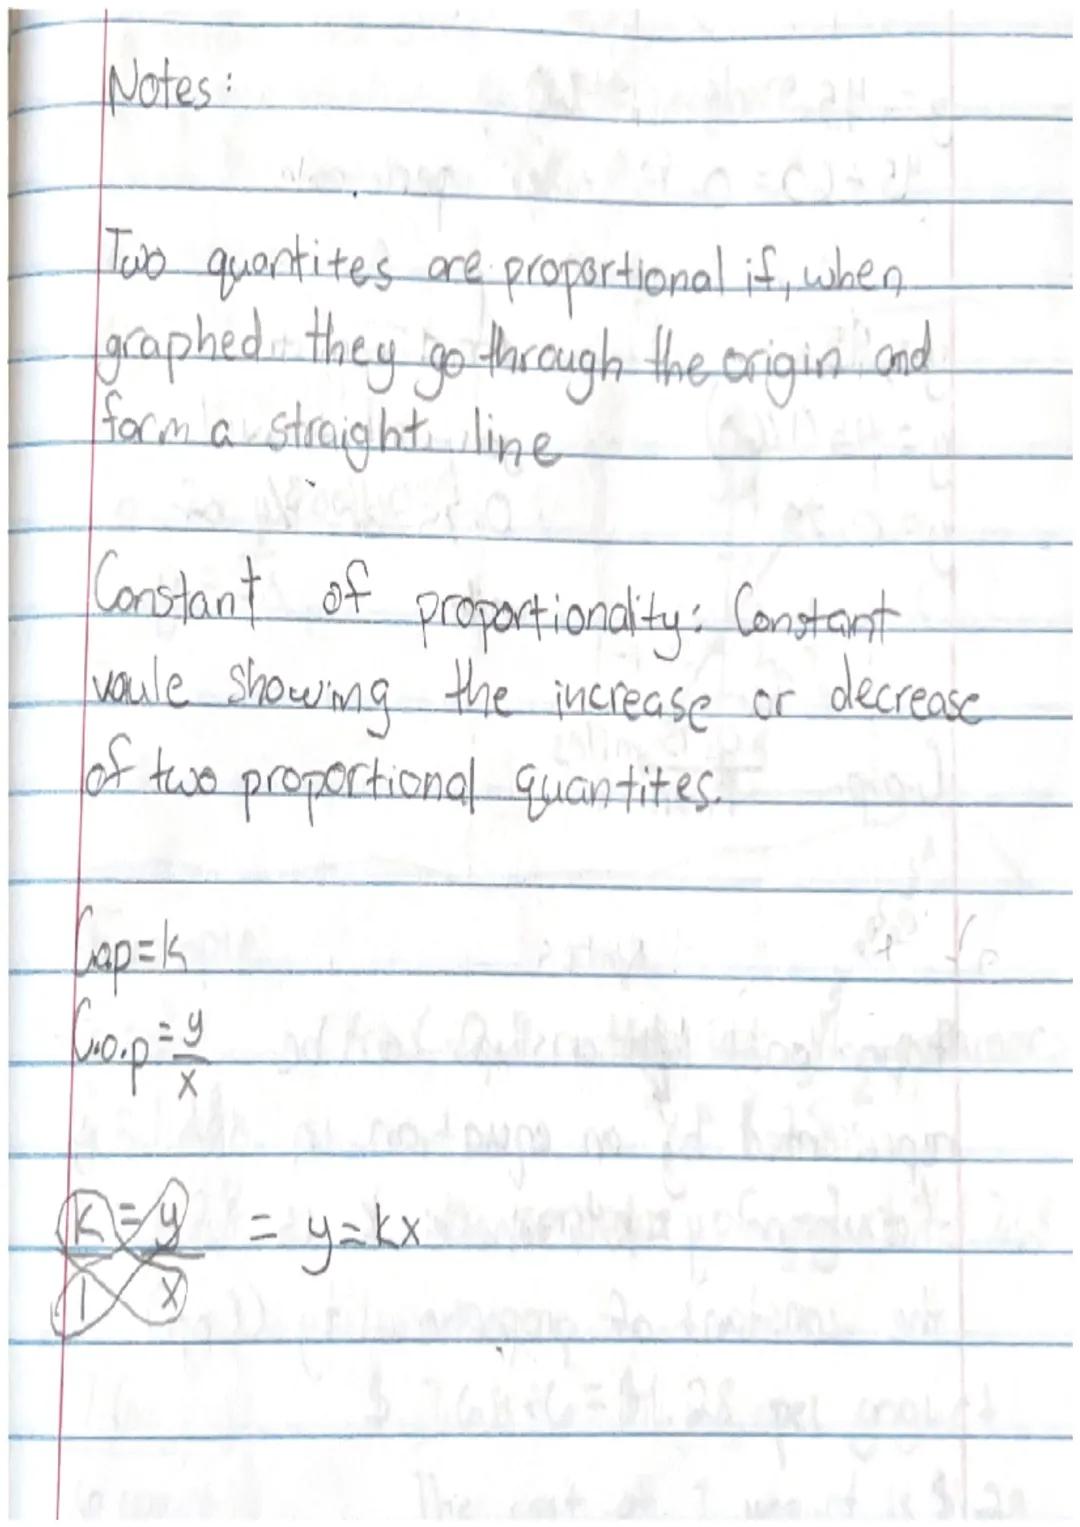 Notes:
Two quantites are proportional if, when
graphed they go through the origin and
form a straight line
Constant of proportionality: Constant
vaule showing the increase or decrease
of two proportional quantites.
Cop=k
C.o.p = y/x
k/1 = y/x = y=kx